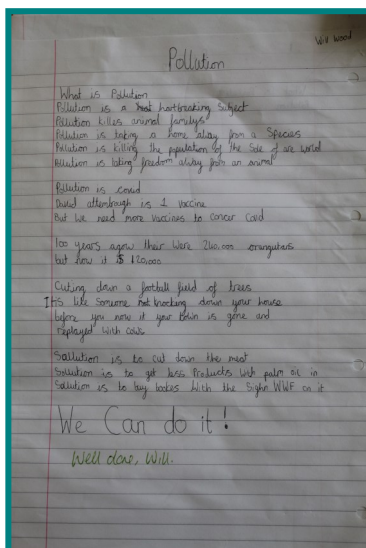 Will Wood
Pollution
What is Pollution
Pollution is a hartbreaking Subject
Pollution killes animal familys
Pollution is taking a home away from a Species
Pollution is killing the population of the Sole of are world
Pollution is taking freedom away from an animal
Pollution is covid
David attenbrough is 1 vaccine
But we need more vaccines to concer Covid
100 years agow their were 240,000 orangutans
but now it is 120,000
Cuting down a football field of trees
It's like someone knocking down your house
before you now it your town is gone and
replayed with cows
Sollution is to cut down the meat
Sollution is to get less Products with palm oil in
Sollution is to buy bokes With the Sighn WWF on it
We Can do it!
Well done, Will.